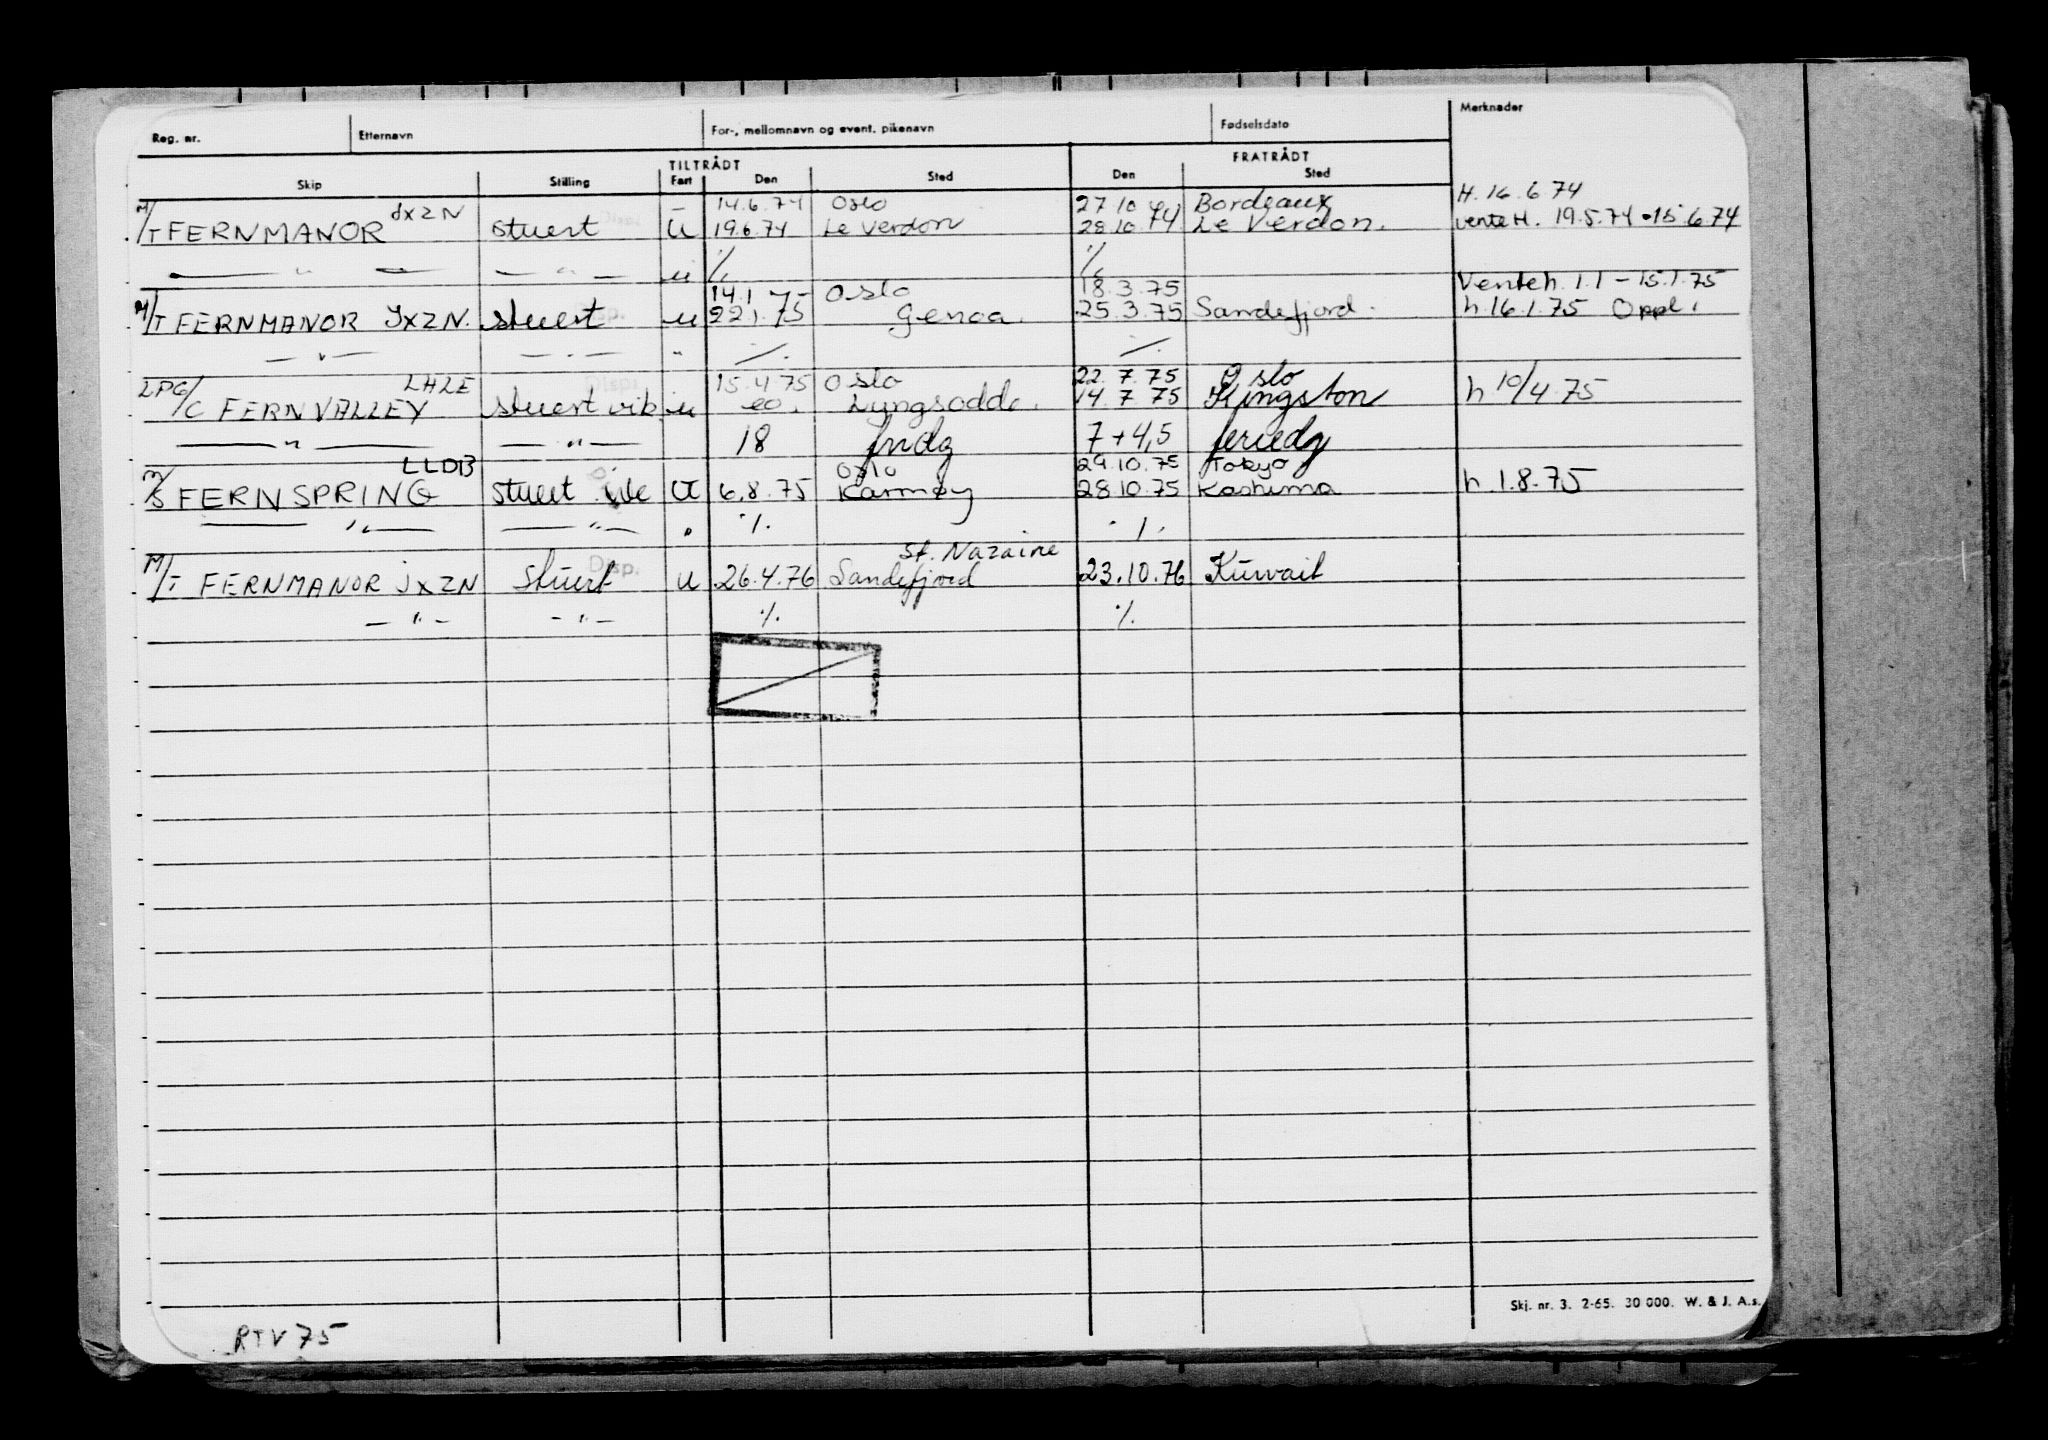 Reg. nr. Etternavn For-, mellomnavn og event. pikenavn Fødselsdato Merknader
TILTRÅDT FRATRÅDT
Skip Stilling Fart Den Sted Den Sted
JXZN 14.6.74 Oslo 27 10 74 Bordeaux H. 16.6.74
M/T FERNMANOR stuert U 19.6.74 Le Verdon 28.10.74 Le Verdon. vente H. 19.5.74 - 15.6.74
— " — — " — u ·/. ·/.
14.1 75 Oslo 18.3.75 Vente h. 1.1 - 15.1.75
M/T FERNMANOR JXZN. stuert u 22.1.75 Genoa. 25.3.75 Sandefjord. h. 16.1.75 Oppl.
— " — — " — " ·/. ·/.
LHLE 15.4.75 Oslo 22.7.75 Oslo
LPG/C FERNVALLEY stuert vik u 20. Lyngsodde. 14.7.75 Kingston h 10/4.75
— " — — " — 18 fridg 7+4,5 feriedg
LLDB Oslo 29.10.75 Tokyo
M/S FERNSPRING stuert U 6.8.75 Karmøy 28.10.75 Kashima h. 1.8.75
— " — — " — " ·/. ·/.
St. Nazaire
M/T FERNMANOR JXZN Stuert Disp. U 26.4.76 Sandefjord 23.10.76 Kuwait
— " — — " — ·/. ·/.
Skj. nr. 3. 2-65. 30 000. W. & J. A.s.
RTV 75